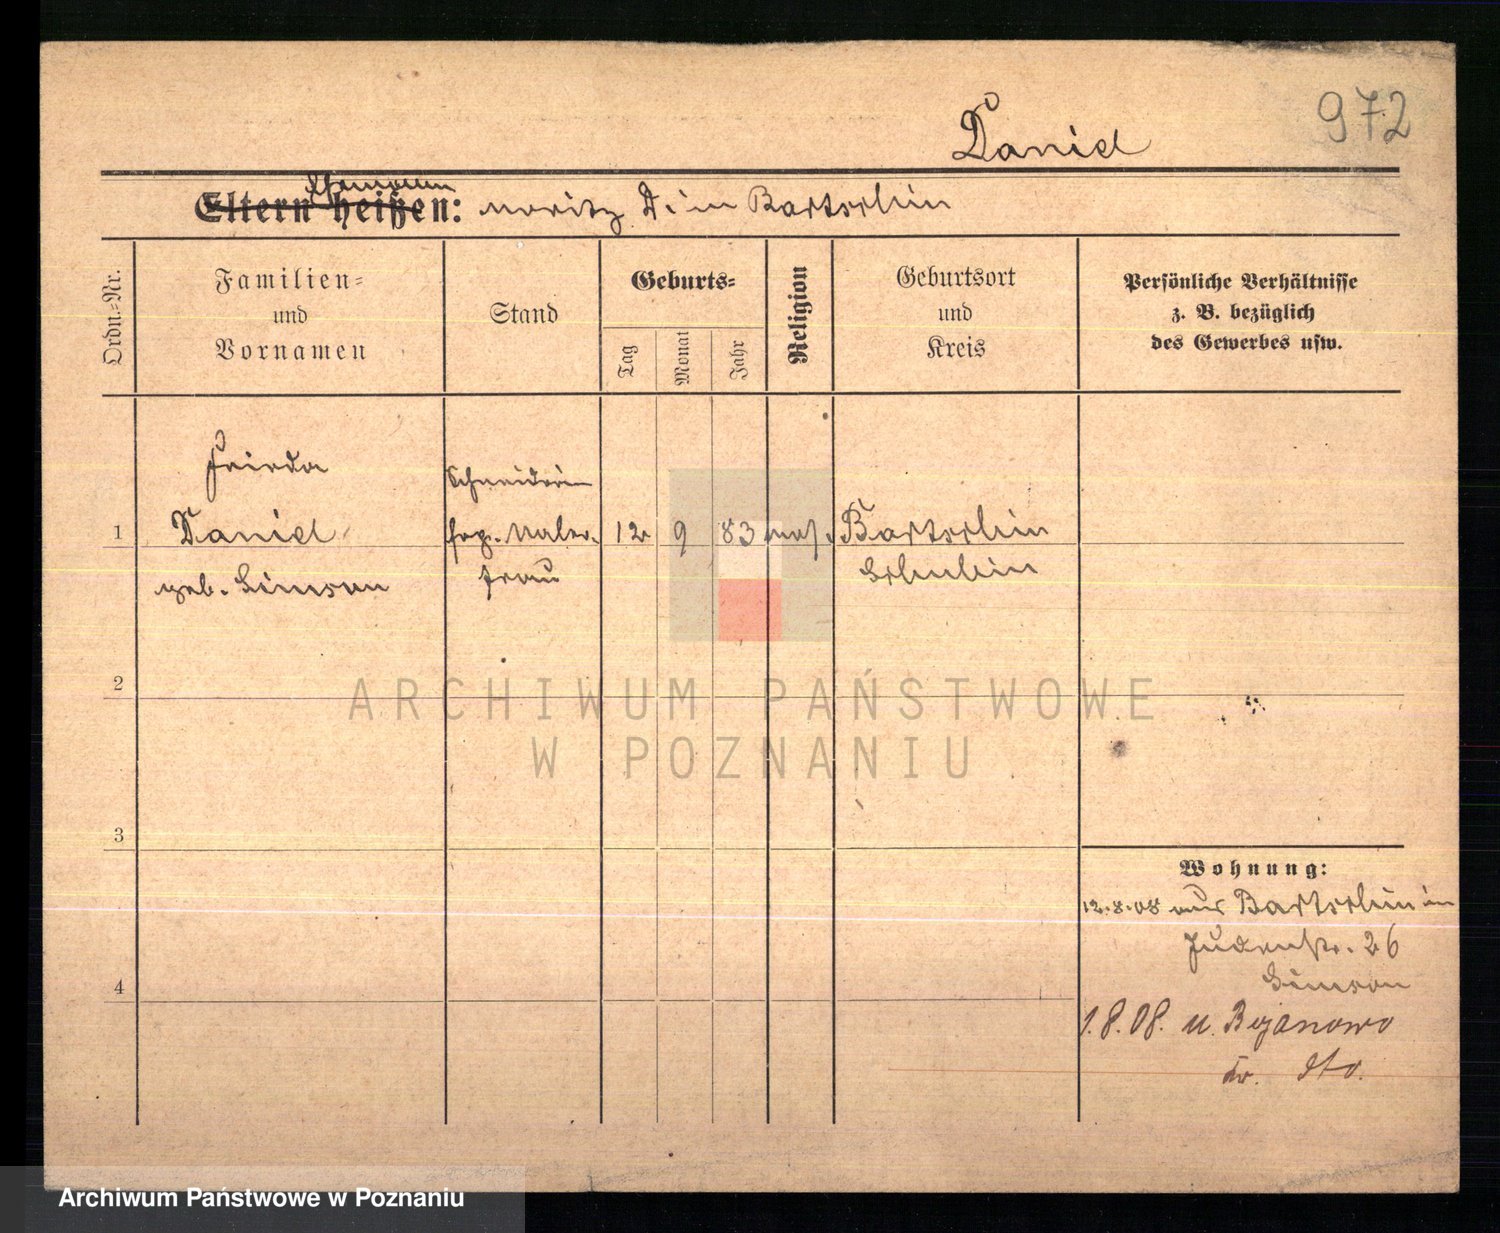 972
Daniel
Ehemann
Eltern heißen: Moritz D. in Bartschin
Ordn.-Nr.
Familien-
und
Vornamen
Stand
Geburts-
Tag
Monat
Jahr
Religion
Geburtsort
und
Kreis
Persönliche Verhältnisse
z. B. bezüglich
des Gewerbes usw.
Frieda
Schneiderin
1 Daniel Maler- 12 9 83 mos. Bartschin
geb. Simson
frau
Schubin
2
3
4
Wohnung:
12.8.08 aus Bartschin in
Judenstr. 26
Simson
1.8.08. n. Bojanowo
ARCHIWUM PAŃSTWOWE
W POZNANIU
Archiwum Państwowe w Poznaniu